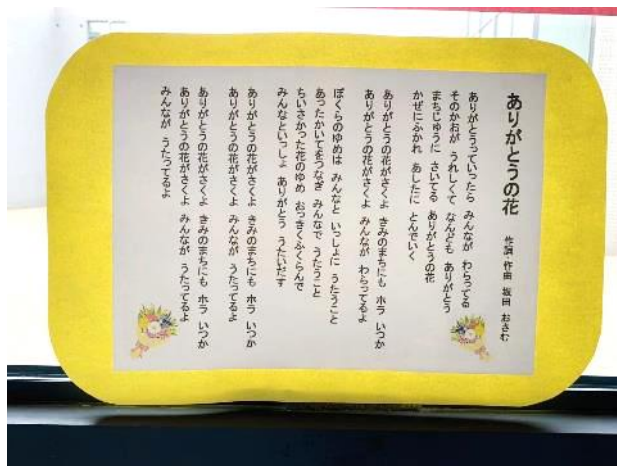 ありがとうの花
作詞・作曲 坂田 おさむ
ありがとうっていったら みんなが わらってる
そのかおが うれしくて なんども ありがとう
まちじゅうに さいてる ありがとうの花
かぜにふかれ あしたに とんでいく
ありがとうの花がさくよ きみのまちにも ホラ いつか
ありがとうの花がさくよ みんなが わらってるよ
ぼくらのゆめは みんなと いっしょに うたうこと
あったかいてをつなぎ みんなで うたうこと
ちいさかった花のゆめ おっきくふくらんで
みんなといっしょ ありがとう うたいだす
ありがとうの花がさくよ きみのまちにも ホラ いつか
ありがとうの花がさくよ みんなが うたってるよ
ありがとうの花がさくよ きみのまちにも ホラ いつか
ありがとうの花がさくよ みんなが うたってるよ
みんなが うたってるよ